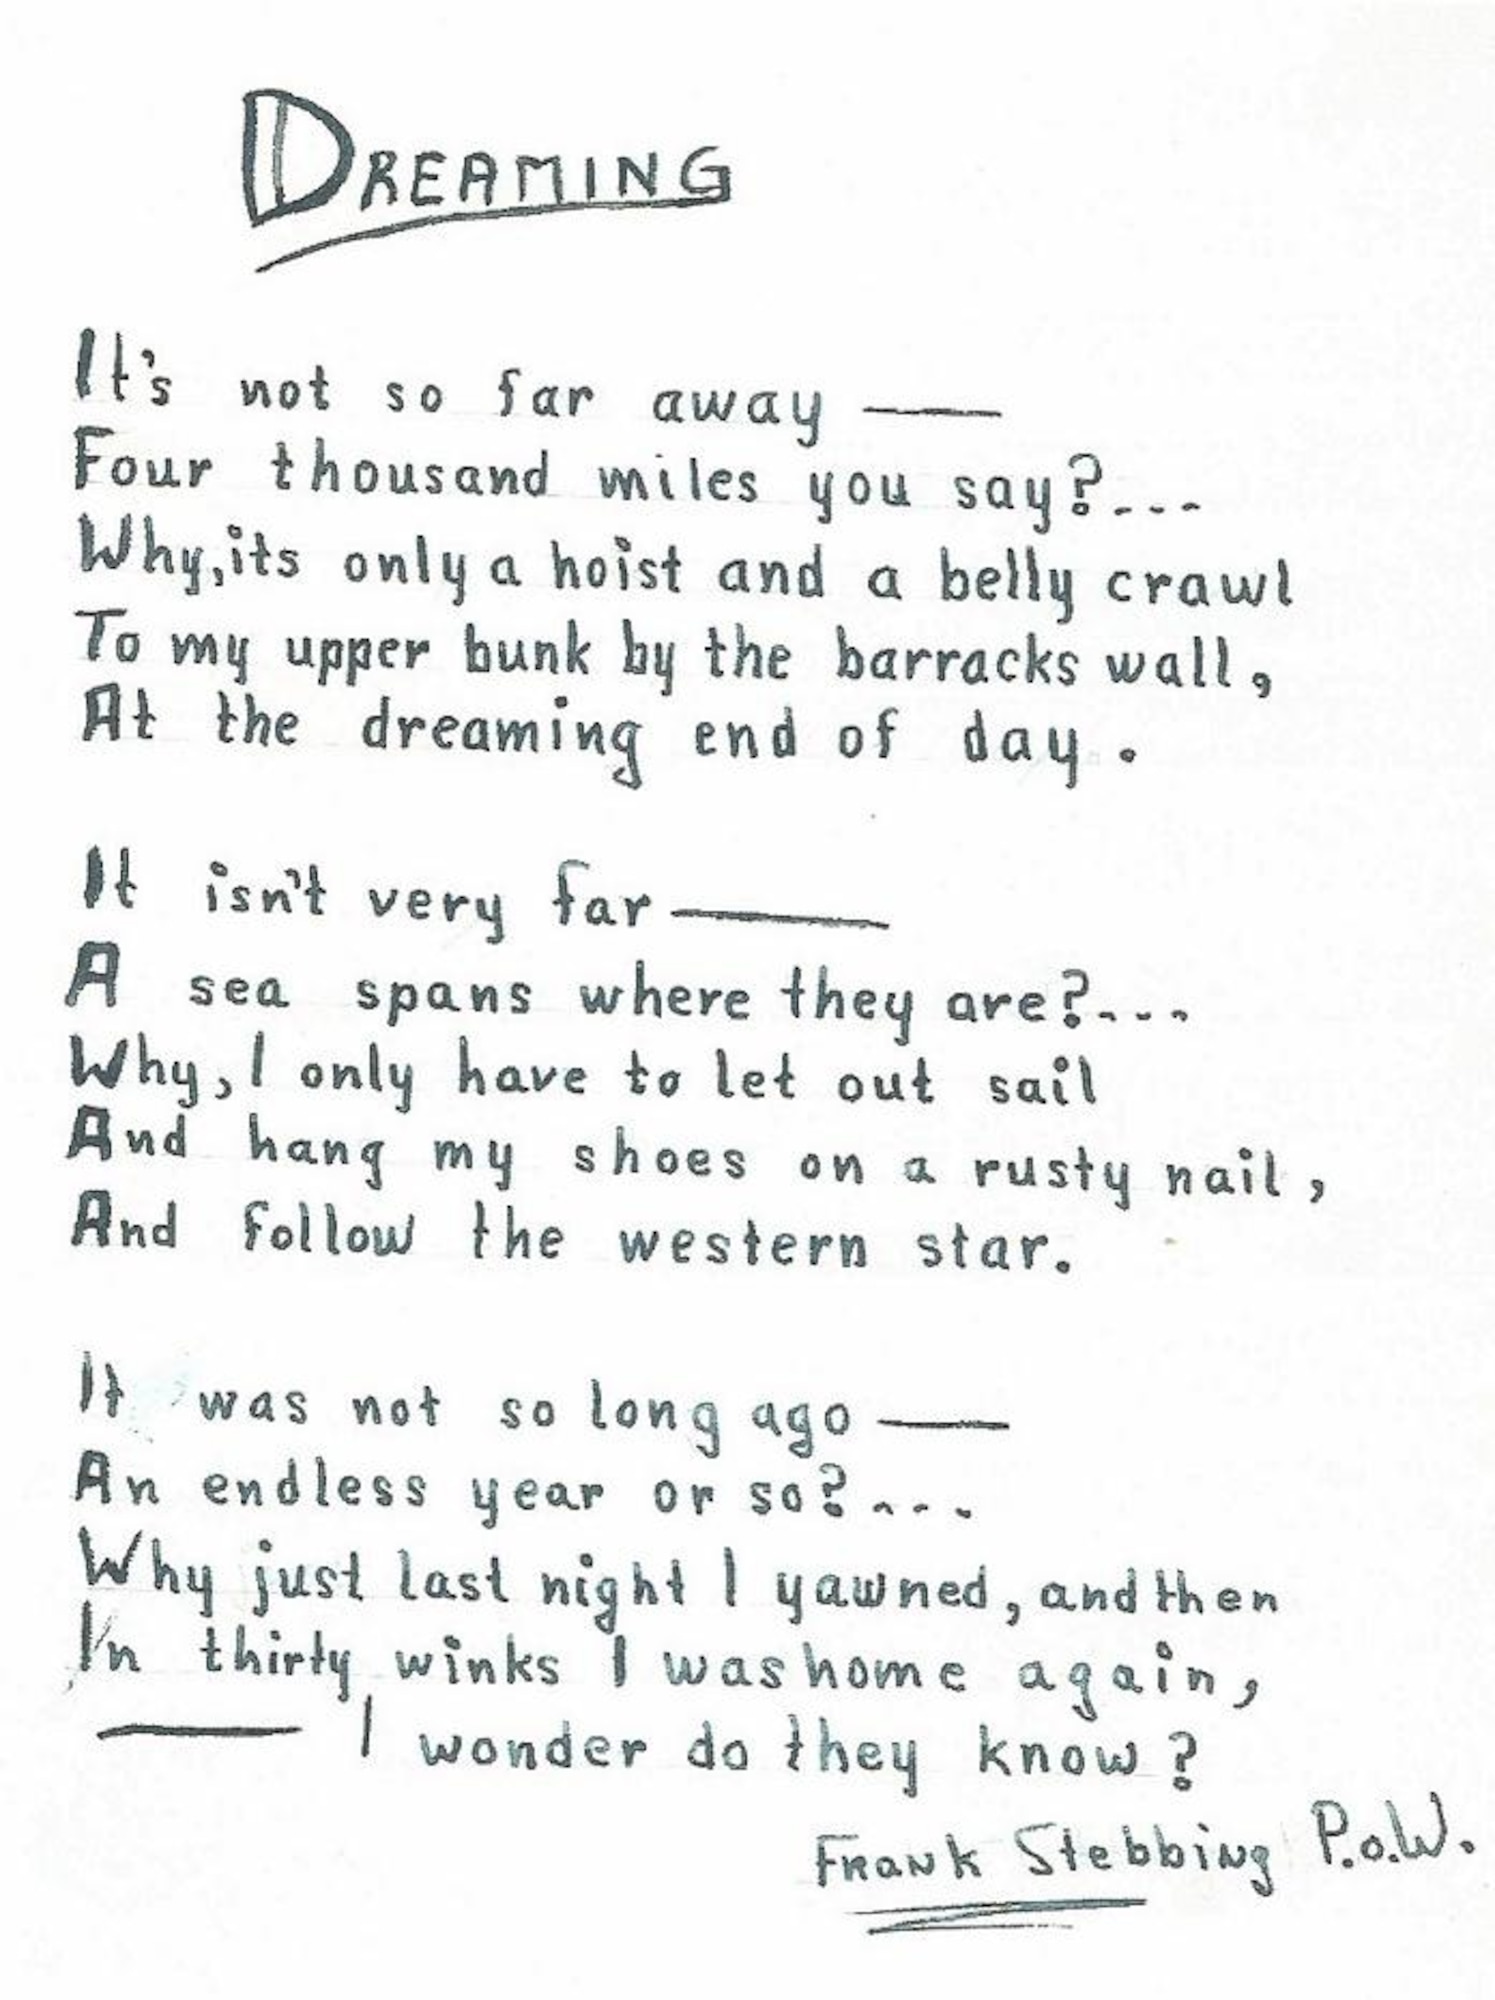 DREAMING
It's not so far away —
Four thousand miles you say?...
Why, its only a hoist and a belly crawl
To my upper bunk by the barracks wall,
At the dreaming end of day.
It isn't very far —
A sea spans where they are?...
Why, I only have to let out sail
And hang my shoes on a rusty nail,
And follow the western star.
It was not so long ago —
An endless year or so?...
Why just last night I yawned, and then
In thirty winks I was home again,
— I wonder do they know?
Frank Stebbing P.o.W.